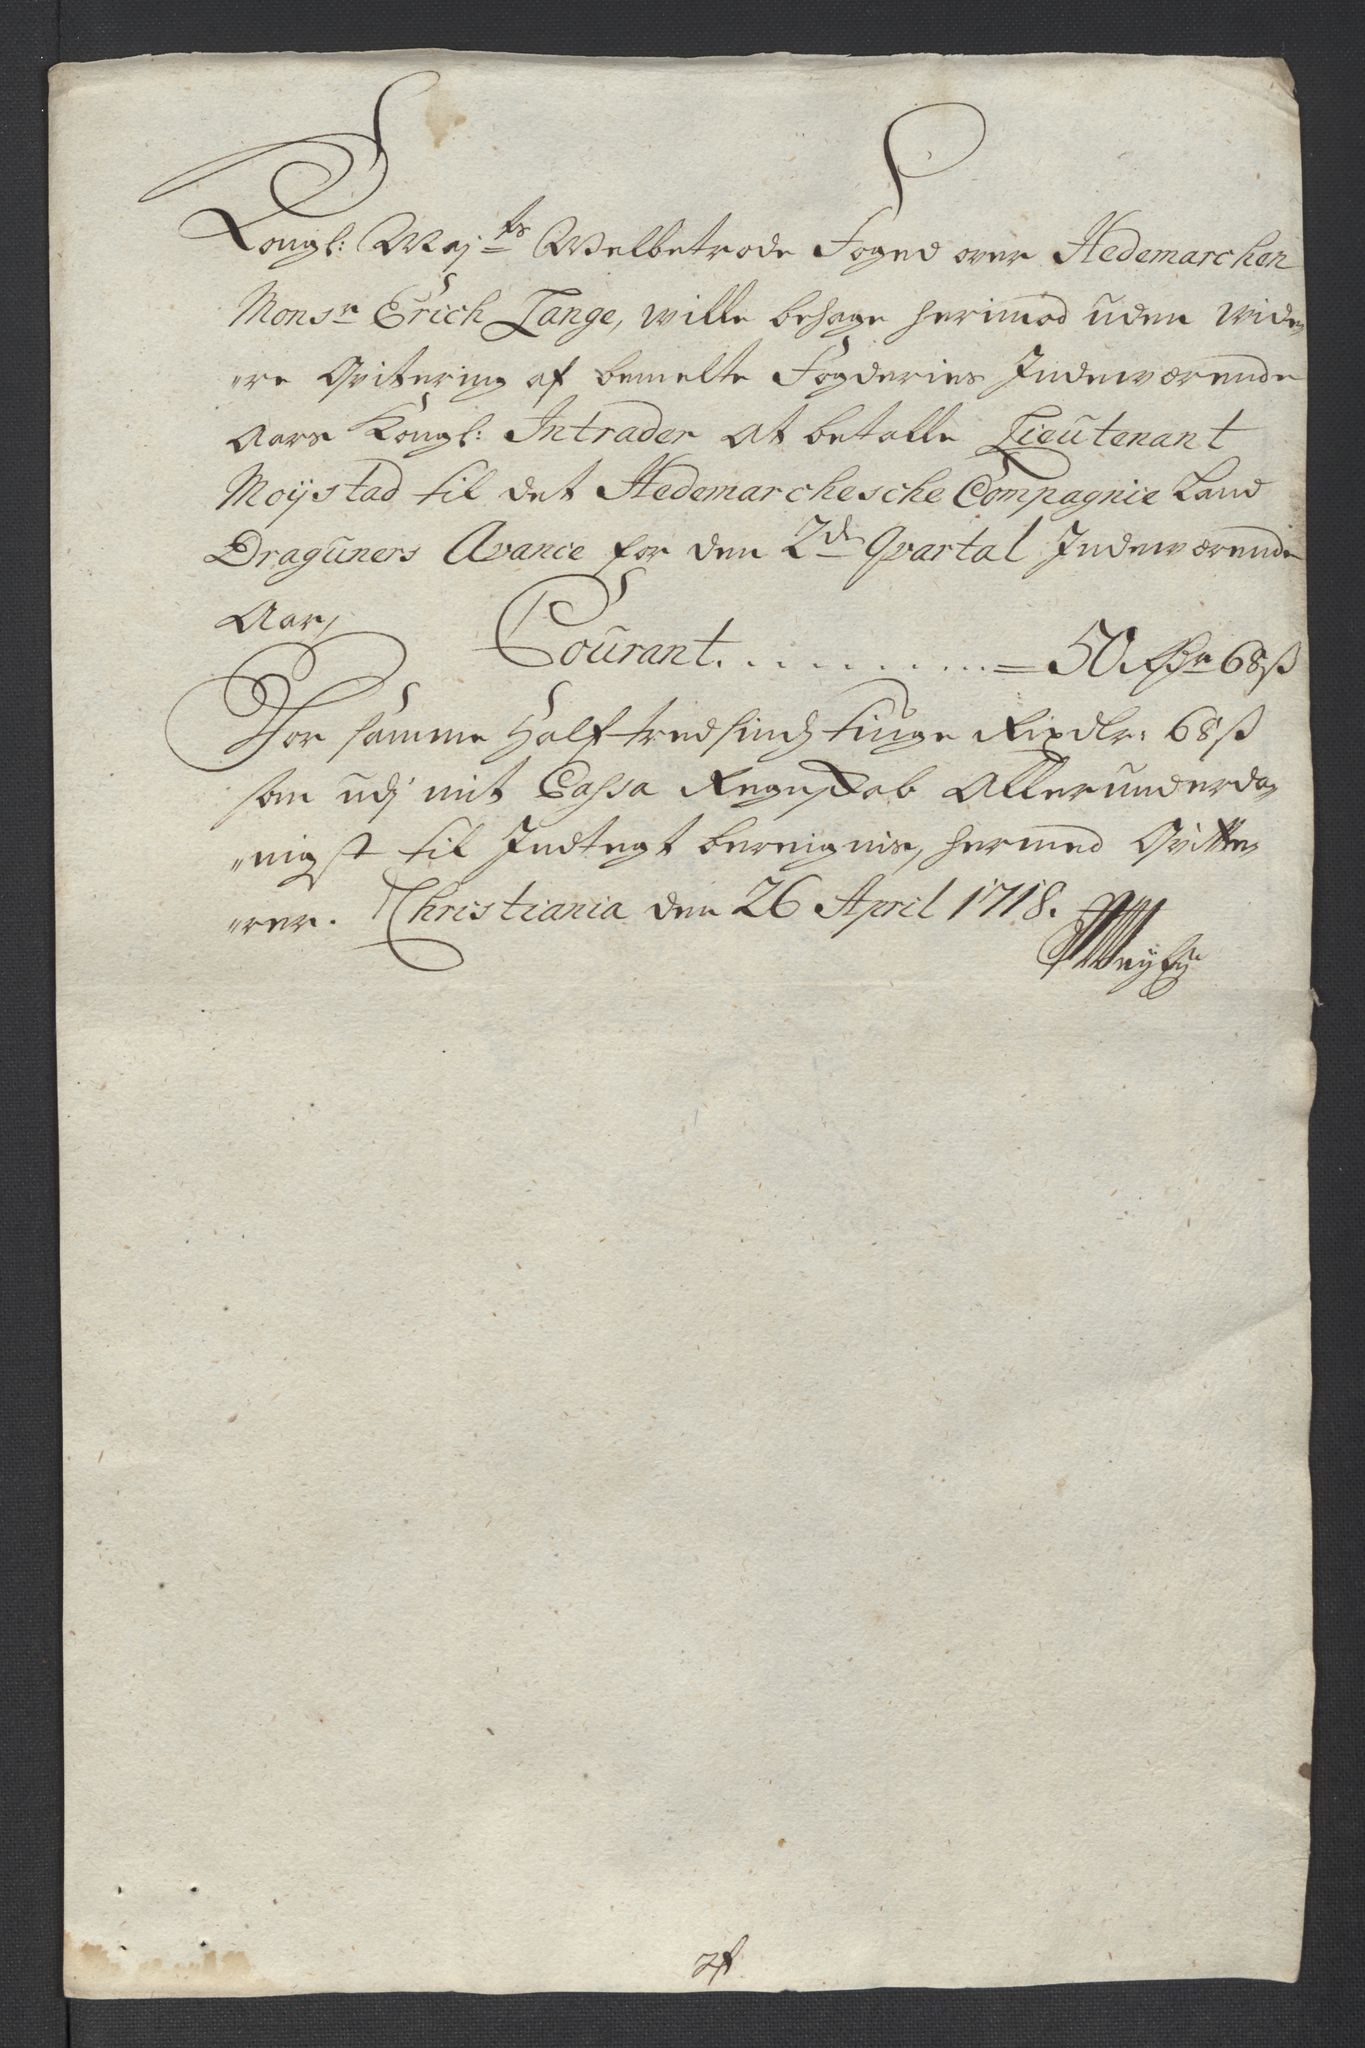 Kongl: Maj:ts Welbetrode Foged over Hedemarchen
Monsr Erich Lange, wille behage herimod uden wide,,
,,re Qvitering af bemelte Fogderies Indeværende
Aars Kongl: Intrader at betalle Lieutenant
Moÿstad til det Hedemarchesche Compagnie Land
Draguners Avance for den 2de Qvartal Indeværende
Aar,
Courant. . . . . . . . . . . . = 50 Rdr 68 ß
For samme Halftredsinds tiuge Rixdlr: 68 ß
som udj mit Cassa Regnskab Allerunderda,,
,,nigst til Indtegt bereignis, hermed Qvitte,,
,,rer. Christiania den 26 April 1718.